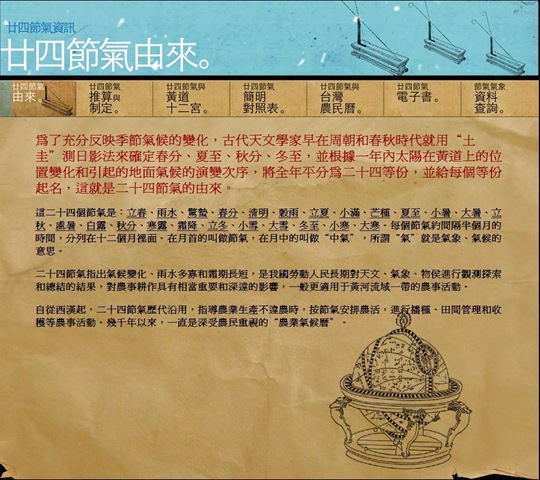 廿四節氣資訊
廿四節氣由來。
廿四節氣
由來。
廿四節氣
推算與
制定。
廿四節氣與
黃道
十二宮。
廿四節氣
簡明
對照表。
廿四節氣與
台灣
農民曆。
廿四節氣
電子書。
節氣氣象
資料
查詢。
為了充分反映季節氣候的變化，古代天文學家早在周朝和春秋時代就用“土
圭”測日影法來確定春分、夏至、秋分、冬至，並根據一年內太陽在黃道上的位
置變化和引起的地面氣候的演變次序，將全年平分為二十四等份，並給每個等份
起名，這就是二十四節氣的由來。
這二十四個節氣是：立春、雨水、驚蟄、春分、清明、穀雨、立夏、小滿、芒種、夏至、小暑、大暑、立
秋、處暑、白露、秋分、寒露、霜降、立冬、小雪、大雪、冬至、小寒、大寒。每個節氣約間隔半個月的
時間，分列在十二個月裡面。在月首的叫做節氣，在月中的叫做“中氣”，所謂“氣”就是氣象、氣候的
意思。
二十四節氣指出氣候變化、雨水多寡和霜期長短，是我國勞動人民長期對天文、氣象、物候進行觀測探索
和總結的結果，對農事耕作具有相當重要和深遠的影響，一般更適用于黃河流域一帶的農事活動。
自從西漢起，二十四節氣歷代沿用，指導農業生產不違農時，按節氣安排農活，進行播種、田間管理和收
穫等農事活動。幾千年以來，一直是深受農民重視的“農業氣候曆”。